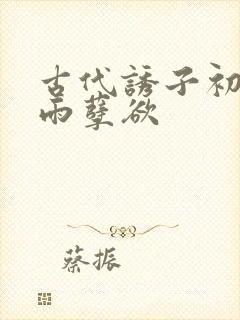 古代誘子初
雨孽欲
蔡振